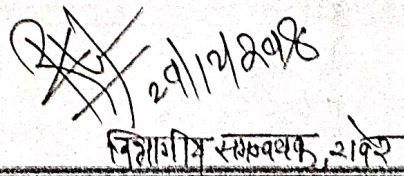 २१/१२/२०१८
विभागीय समन्वयक, रावेर